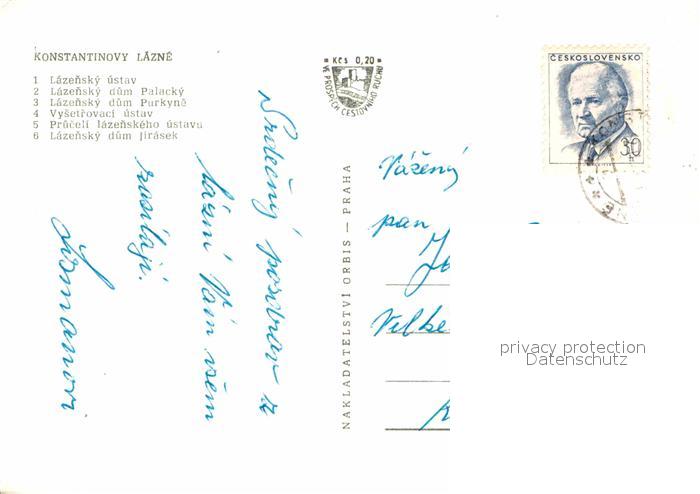 KONSTANTINOVY LÁZNĚ
1 Lázeňský ústav
2 Lázeňský dům Palacký
3 Lázeňský dům Purkyně
4 Vyšetřovací ústav
5 Průčelí lázeňského ústavu
6 Lázeňský dům Jirásek
Kčs 0,20
VE PROSPĚCH CESTOVNÍHO RUCHU
ČESKOSLOVENSKO
30
h
Srdečný pozdrav z
lázní Vám všem
zasílají
NAKLADATELSTVÍ ORBIS — PRAHA
Vážený
pan
Velke
privacy protection
Datenschutz